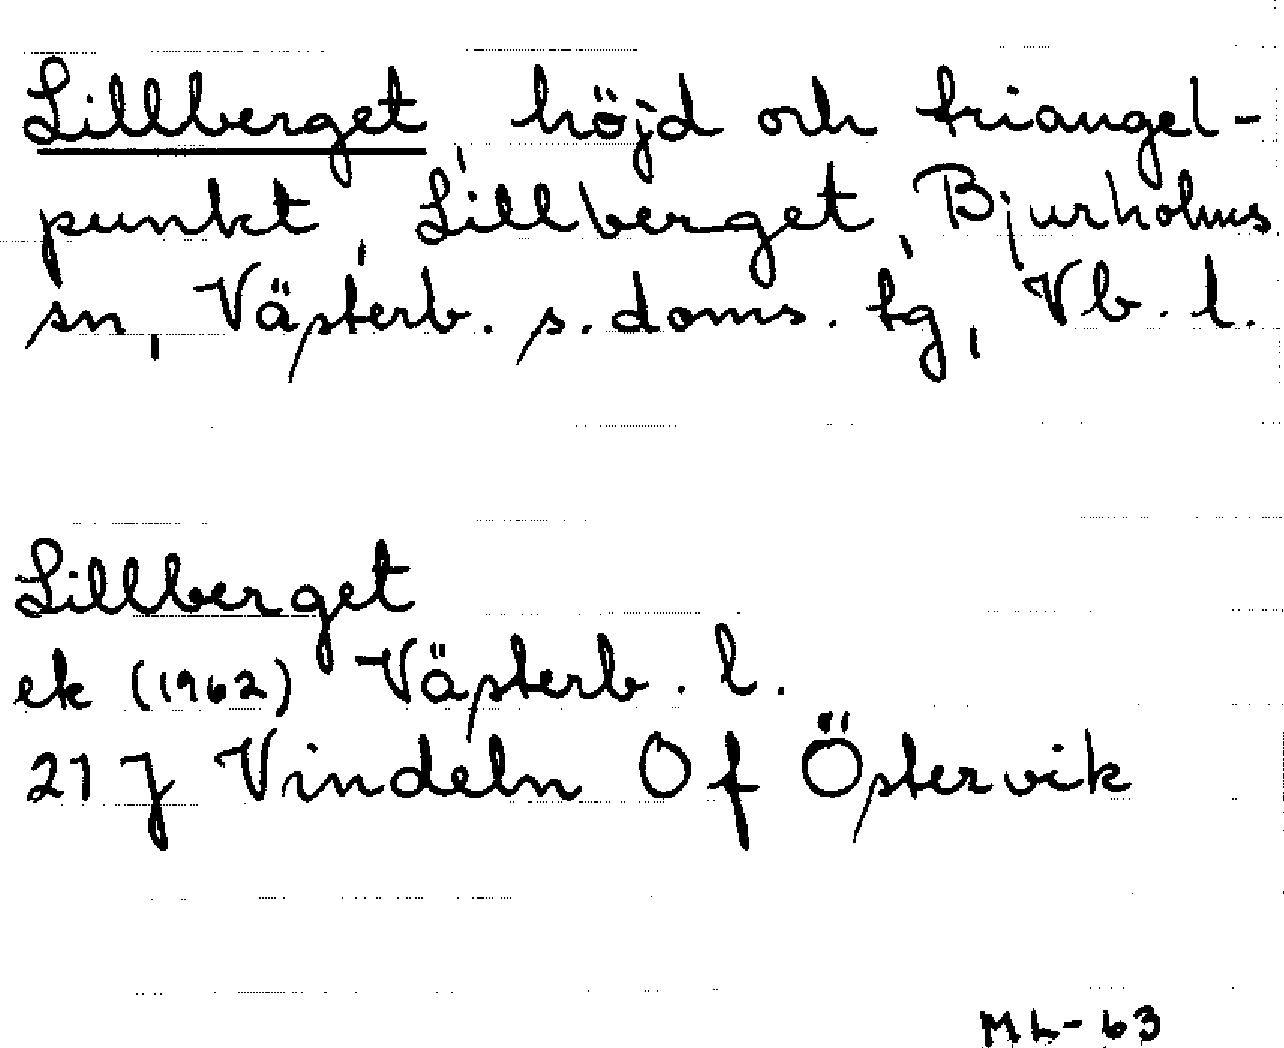 Lillberget, höjd och triangel-
punkt, Lillberget, Bjurholms
sn, Västerb. s. doms. tg, Vb. l.
Lillberget
ek (1962) Västerb. l.
21 J Vindeln 0 f Östervik
ML-63